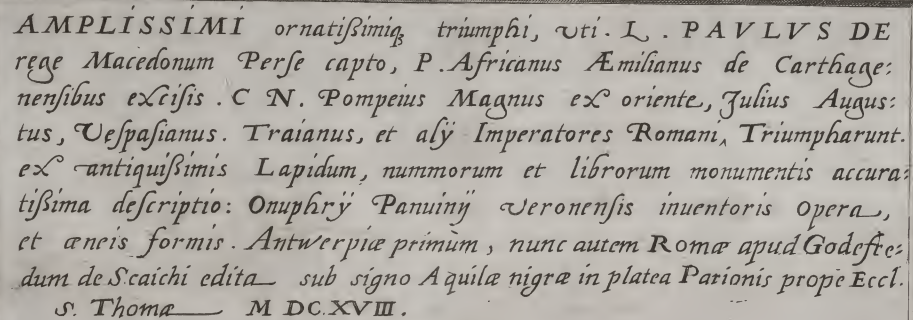 AMPLISSIMI ornatißimiqȝ triumphi, vti. L. PAVLVS DE
rege Macedonum Perse capto, P. Africanus Æmilianus de Carthage:
nensibus excisis. C N. Pompeius Magnus ex oriente, Julius Augus:
tus, Vespasianus. Traianus, et alÿ Imperatores Romani, Triumpharunt.
ex antiquißimis Lapidum, nummorum et librorum monumentis accura:
tißima descriptio: Onuphrÿ Panuinÿ Veronensis inuentoris opera,
et æneis formis. Antwerpiæ primùm, nunc autem Romæ apud Godefre:
dum de Scaichi edita sub signo Aquilæ nigræ in platea Parionis prope Eccl.
S. Thomæ M DC.XVIII.